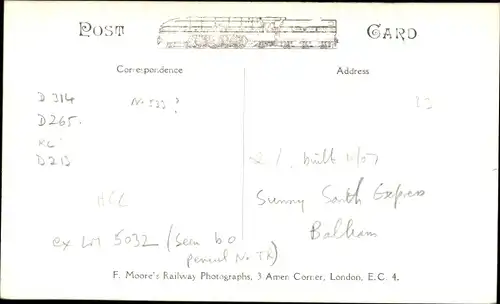 POST CARD
Correspondence
Address
D 314
D265.
D213
HCL
ex LM 5032 (seen b o
pencil No TR)
built 11/07
Sunny South Express
Balham
F. Moore's Railway Photographs, 3 Amen Corner, London, E.C. 4.